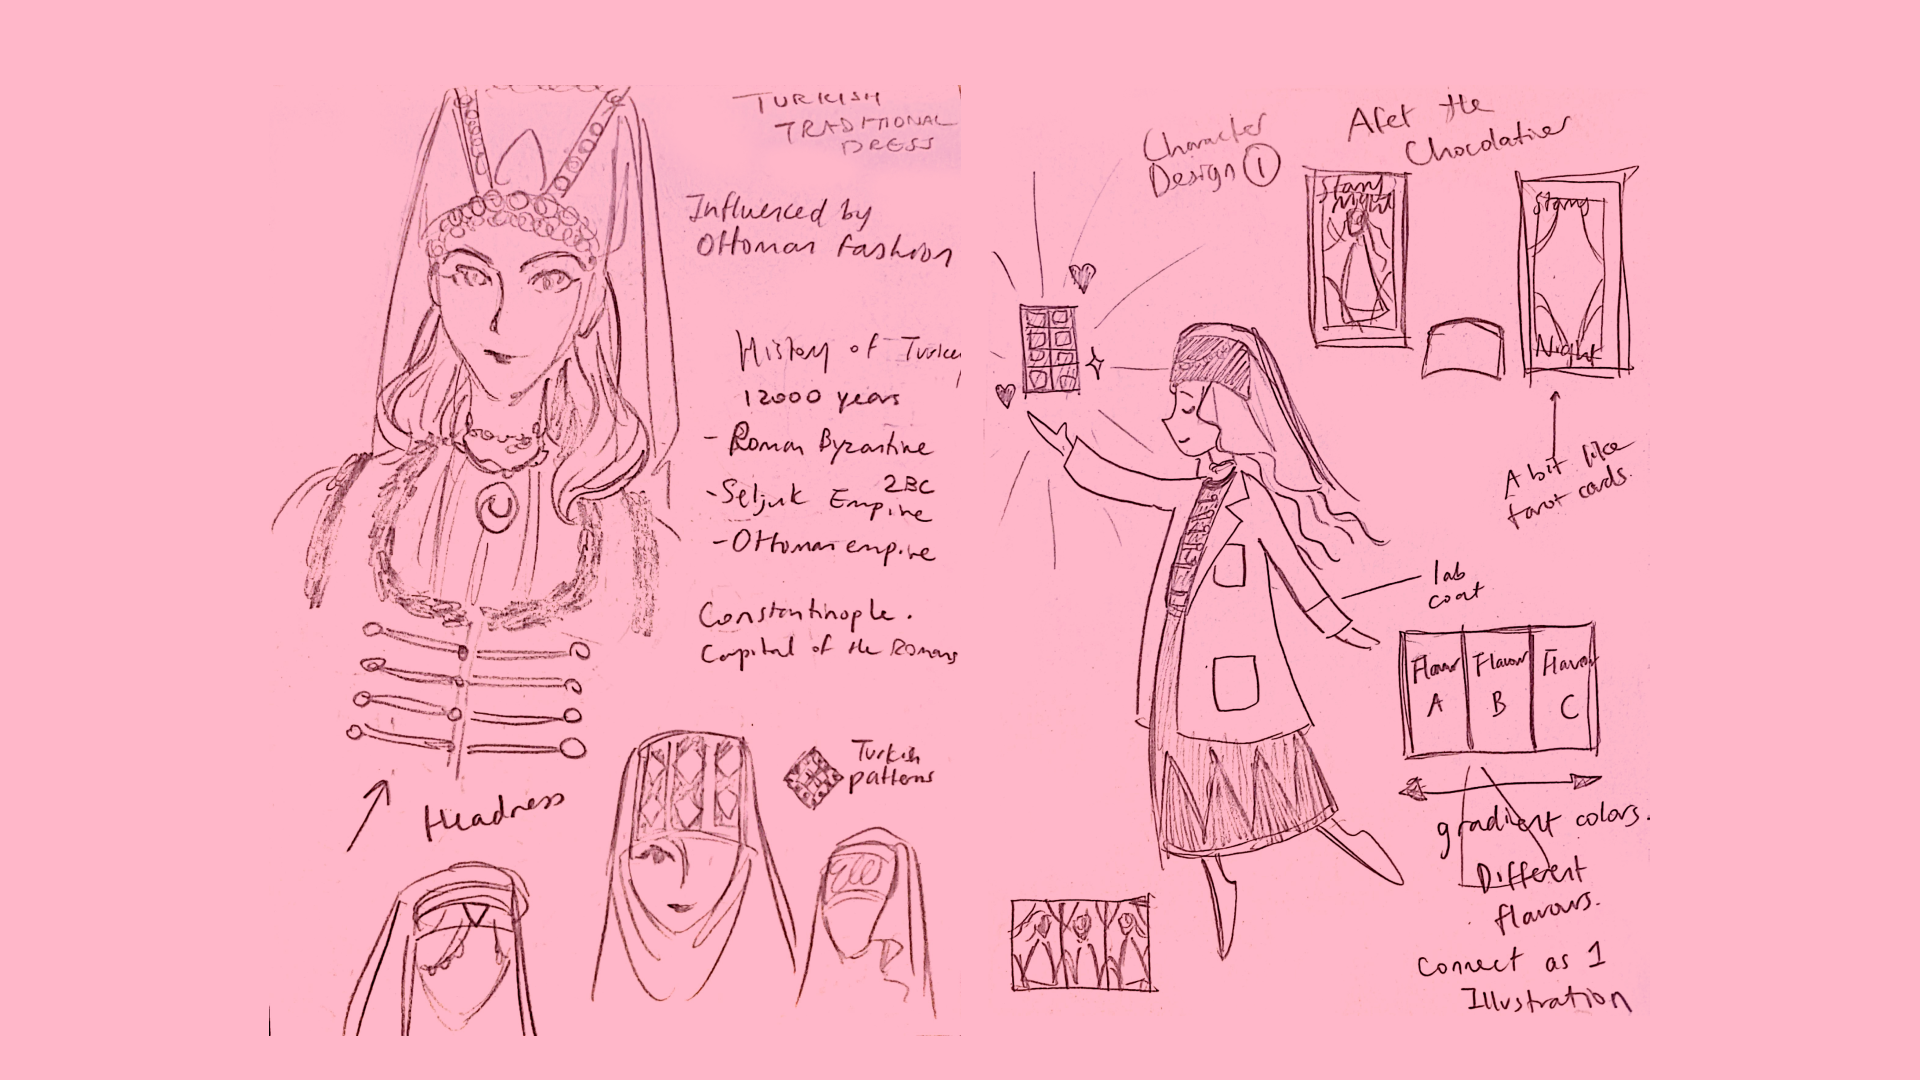 TURKISH
TRADITIONAL
DRESS
Influenced by
Ottoman Fashion
History of Turkey
12000 years
- Roman Byzantine
2BC
- Seljuk Empire
- Ottoman empire
Constantinople.
Capital of the Romans
Turkish
patterns
Headress
Character
Design 1
Afet the
Chocolatier
Starry
Night
Starry
Night
A bit like
tarot cards.
lab
coat
Flavour Flavour Flavour
A B C
gradient colors.
Different
flavours.
Connect as 1
Illustration